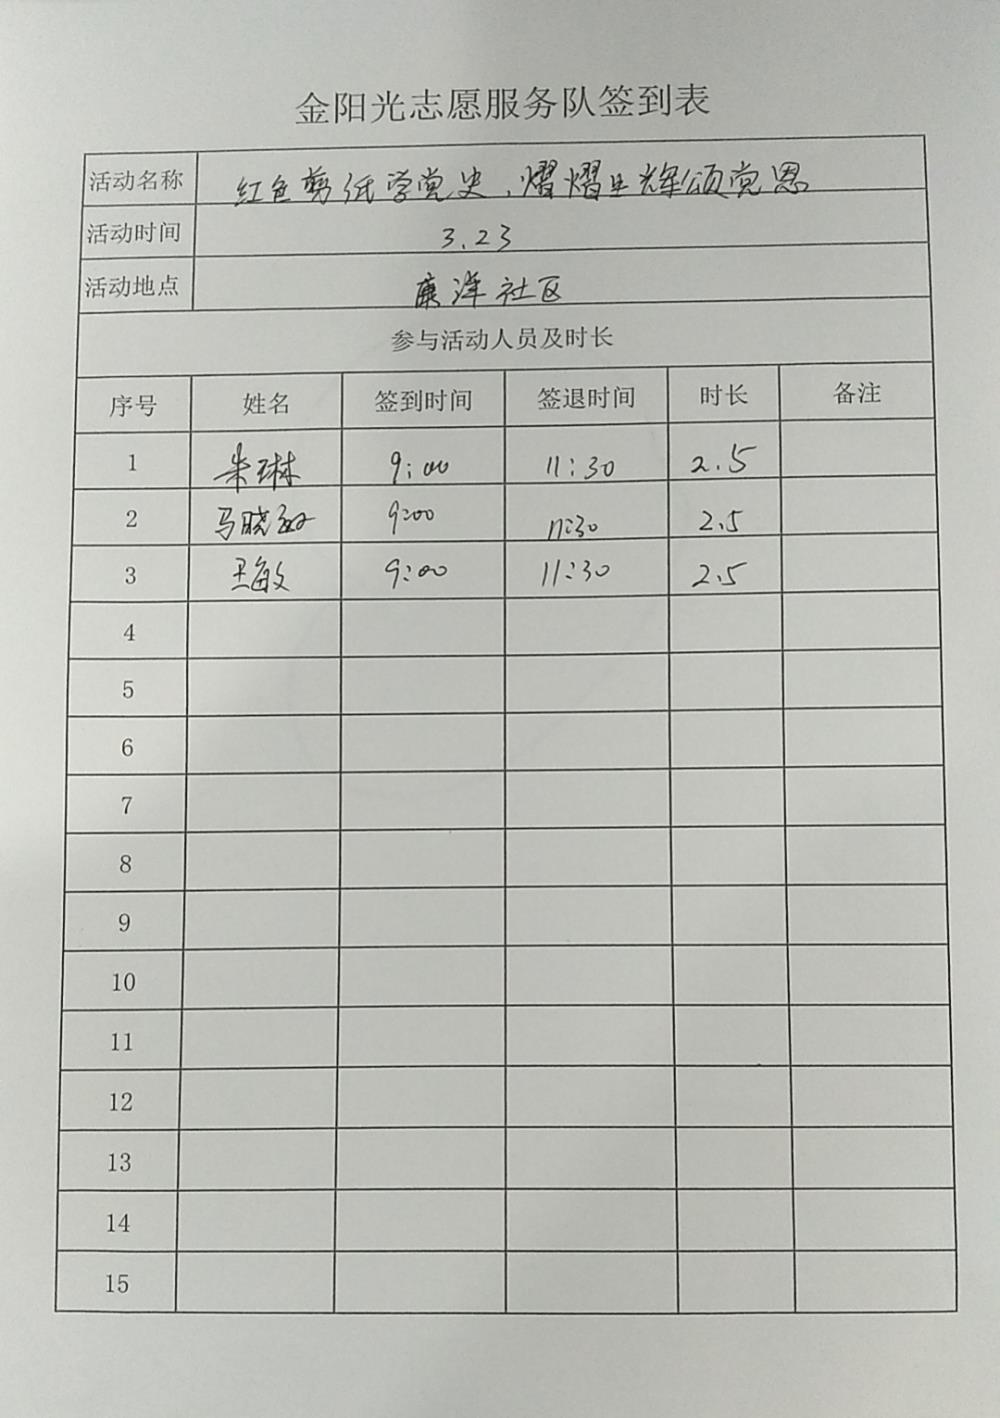 金阳光志愿服务队签到表
活动名称 红色剪纸学党史、熠熠生辉颂党恩
活动时间 3.23
活动地点 康洋社区
参与活动人员及时长
序号 姓名 签到时间 签退时间 时长 备注
1 朱琳 9:00 11:30 2.5
2 马晓 9:00 11:30 2.5
3 王敏 9:00 11:30 2.5
4
5
6
7
8
9
10
11
12
13
14
15